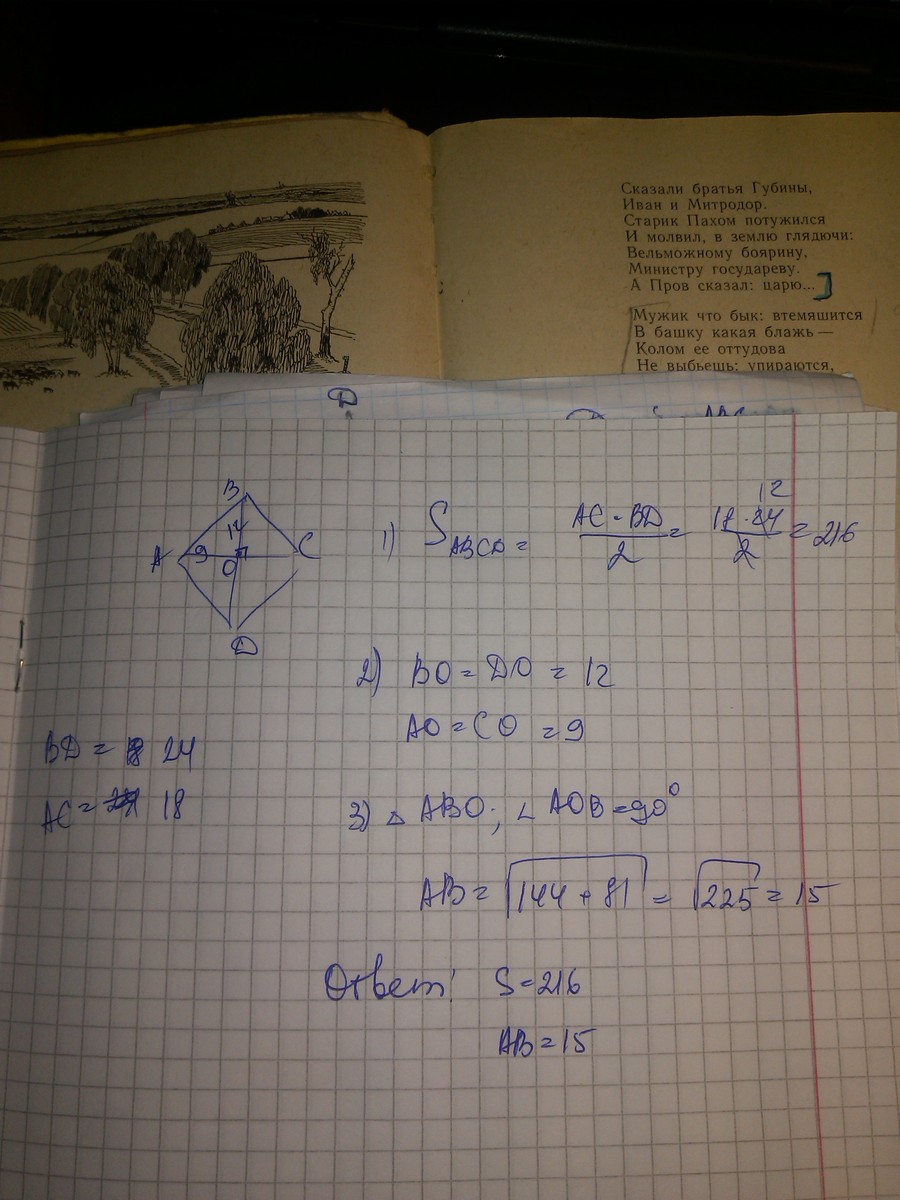 Сказали братья Губины,
Иван и Митродор.
Старик Пахом потужился
И молвил, в землю глядючи:
Вельможному боярину,
Министру государеву.
А Пров сказал: царю...]
Мужик что бык: втемяшится
В башку какая блажь —
Колом ее оттудова
Не выбьешь: упираются,
D
B
12
A 9 C
O
D
1) S ABCD = AC · BD / 2 = 18 · 24 / 2 = 216
12
2) BO = DO = 12
AO = CO = 9
BD = 24
AC = 18
3) △ ABO; ∠ AOB = 90°
AB = √144 + 81 = √225 = 15
Ответ: S = 216
AB = 15